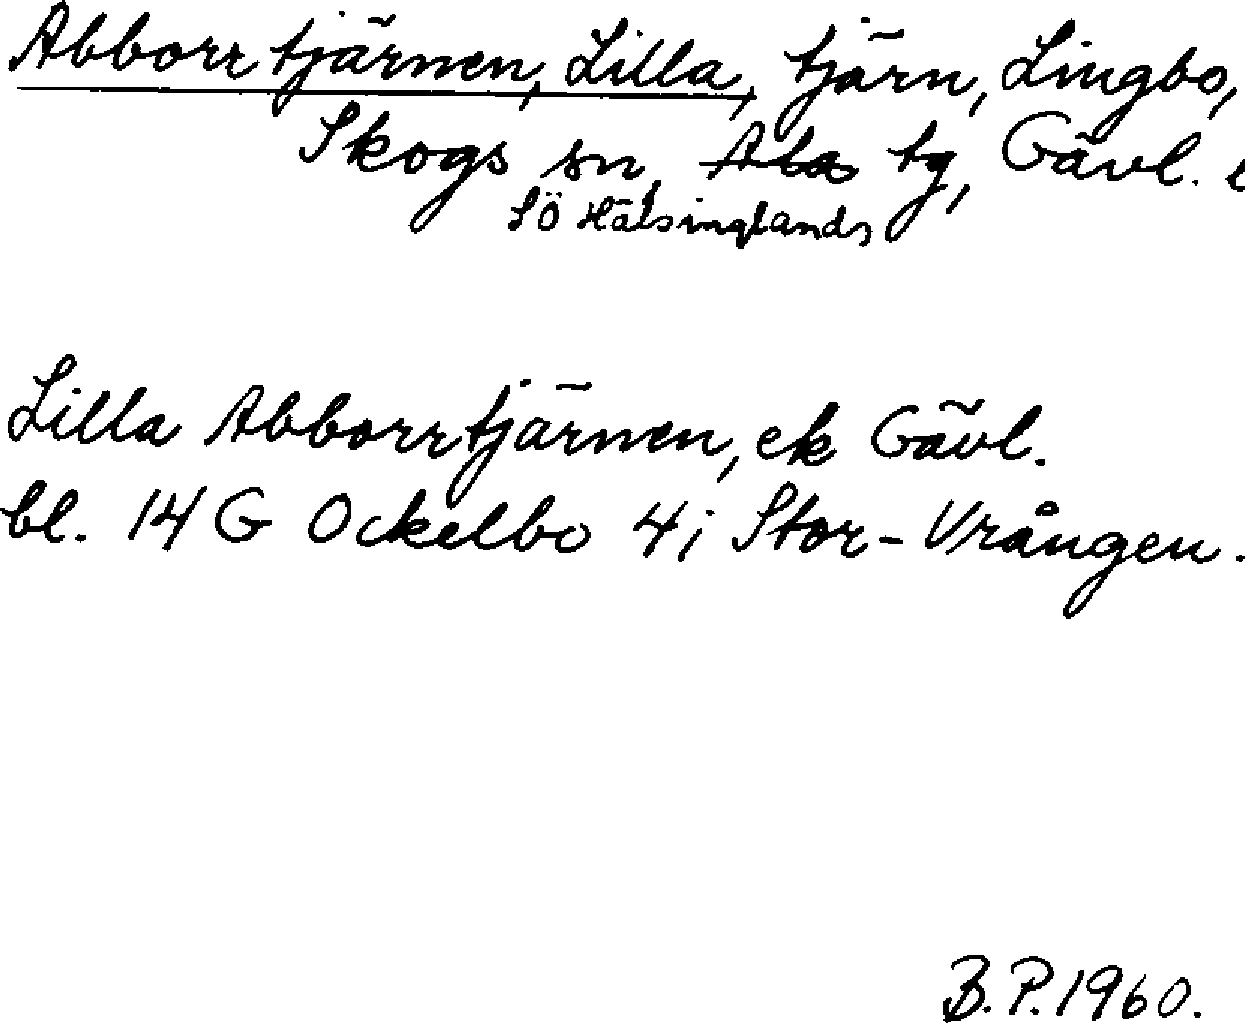 Abborrtjärnen, Lilla, tjärn, Lingbo,
Skogs sn, Ala tg, Gävl. l
SÖ Hälsinglands
Lilla Abborrtjärnen, ek Gävl.
bl. 14 G Ockelbo 4 i Stor-Vrången.
B.P. 1960.